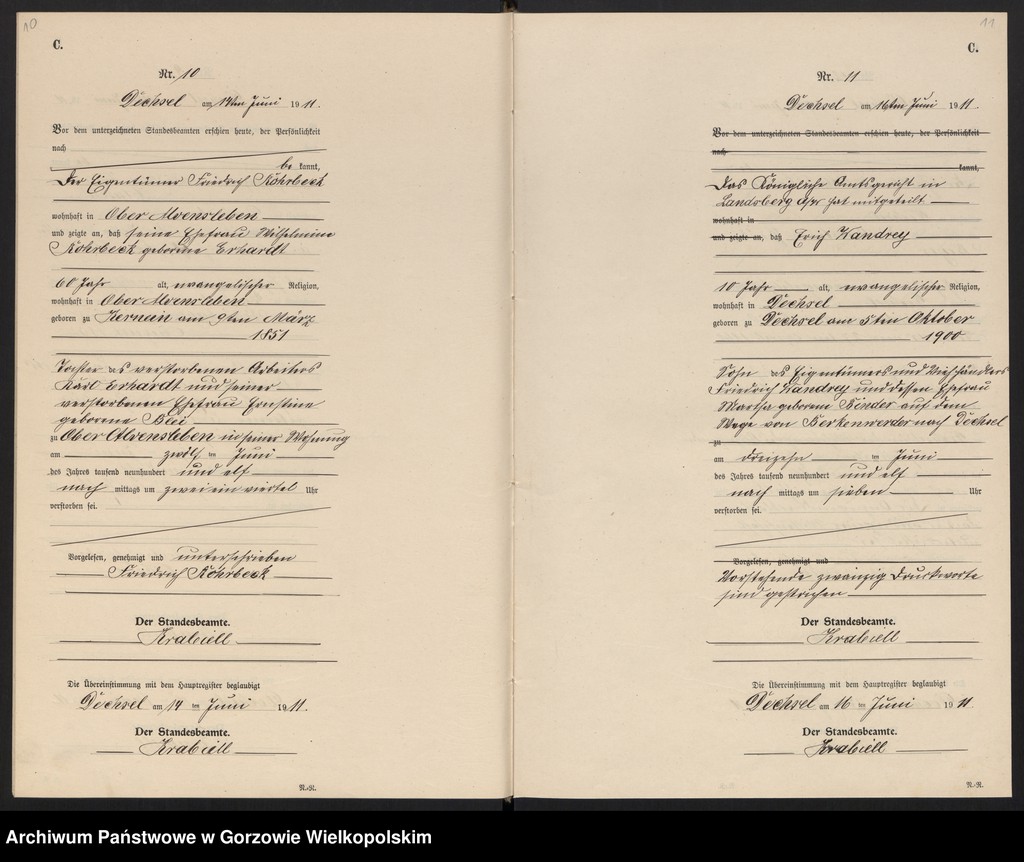 10
C.
Nr. 10
Dechsel am 14ten Juni 1911.
Vor dem unterzeichneten Standesbeamten erschien heute, der Persönlichkeit
nach
bekannt,
Der Eigentümer Friedrich Röhrbeck
wohnhaft in Ober Alvensleben
und zeigte an, daß seine Ehefrau Wilhelmine
Röhrbeck geborene Erhardt
60 Jahr alt, evangelischer Religion,
wohnhaft in Ober Alvensleben
geboren zu Kernein am 9ten März
1851
Tochter des verstorbenen Arbeiters
Karl Erhardt und seiner
verstorbenen Ehefrau Ernstine
geborene Blei
zu Ober Alvensleben in seiner Wohnung
am zwölf ten Juni
des Jahres tausend neunhundert und elf
nach mittags um zwei ein viertel Uhr
verstorben sei.
Vorgelesen, genehmigt und unterschrieben
Friedrich Röhrbeck
Der Standesbeamte.
Krabiell
Die Übereinstimmung mit dem Hauptregister beglaubigt
Dechsel am 14 ten Juni 1911.
Der Standesbeamte.
Krabiell
N.-R.
11
C.
Nr. 11
Dechsel am 16ten Juni 1911.
Vor dem unterzeichneten Standesbeamten erschien heute, der Persönlichkeit
nach
kannt,
Das Königliche Amtsgericht in
Landsberg a/W hat mitgeteilt
wohnhaft in
und zeigte an, daß Erich Wandrey
10 Jahr alt, evangelischer Religion,
wohnhaft in Dechsel
geboren zu Dechsel am 5ten Oktober
1900
Sohn des Eigentümers und Viehhändlers
Friedrich Wandrey und dessen Ehefrau
Martha geborene Binder auf dem
Wege von Berkenwerder nach Dechsel
zu
am dreizehn ten Juni
des Jahres tausend neunhundert und elf
nach mittags um sieben Uhr
verstorben sei.
Vorgelesen, genehmigt und
Vorstehende zwanzig Druckworte
sind gestrichen
Der Standesbeamte.
Krabiell
Die Übereinstimmung mit dem Hauptregister beglaubigt
Dechsel am 16 ten Juni 1911
Der Standesbeamte.
Krabiell
N.-R.
Archiwum Państwowe w Gorzowie Wielkopolskim